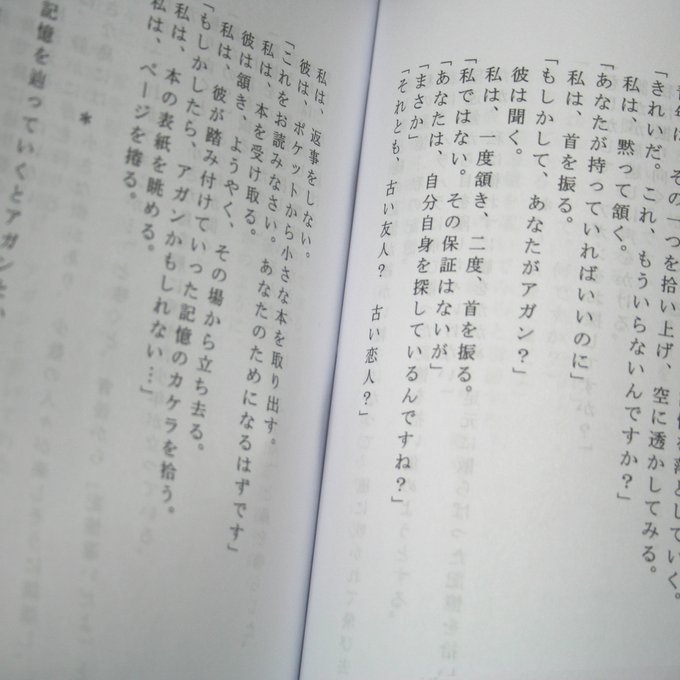 を落としていく。
その一つを拾い上げ、空に透かしてみる。
「きれいだ。これ、もういらないんですか?」
私は、黙って頷く。
「あなたが持っていればいいのに」
私は、首を振る。
「もしかして、あなたがアガン?」
彼は聞く。
私は、一度頷き、二度、首を振る。
「私ではない。その保証はないが」
「あなたは、自分自身を探しているんですね?」
「まさか」
「それとも、古い友人? 古い恋人?」
私は、返事をしない。
彼は、ポケットから小さな本を取り出す。
「これをお読みなさい。あなたのためになるはずです」
私は、本を受け取る。
彼は頷き、ようやく、その場から立ち去る。
私は、彼が踏み付けていった記憶のカケラを拾う。
「もしかしたら、アガンかもしれない…」
私は、本の表紙を眺める。
私は、ページを捲る。
*
記憶を辿っていくとアガンと、